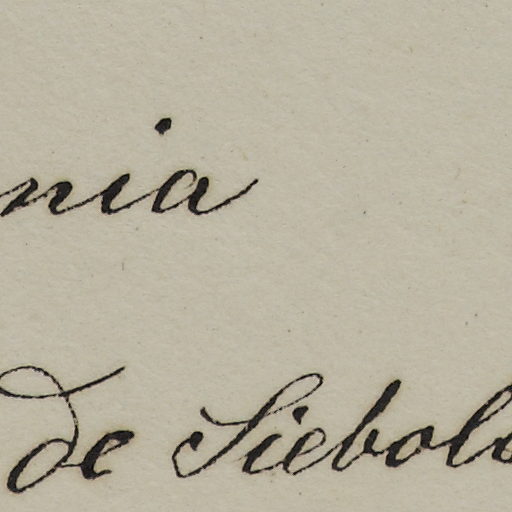 nia
de Siebold